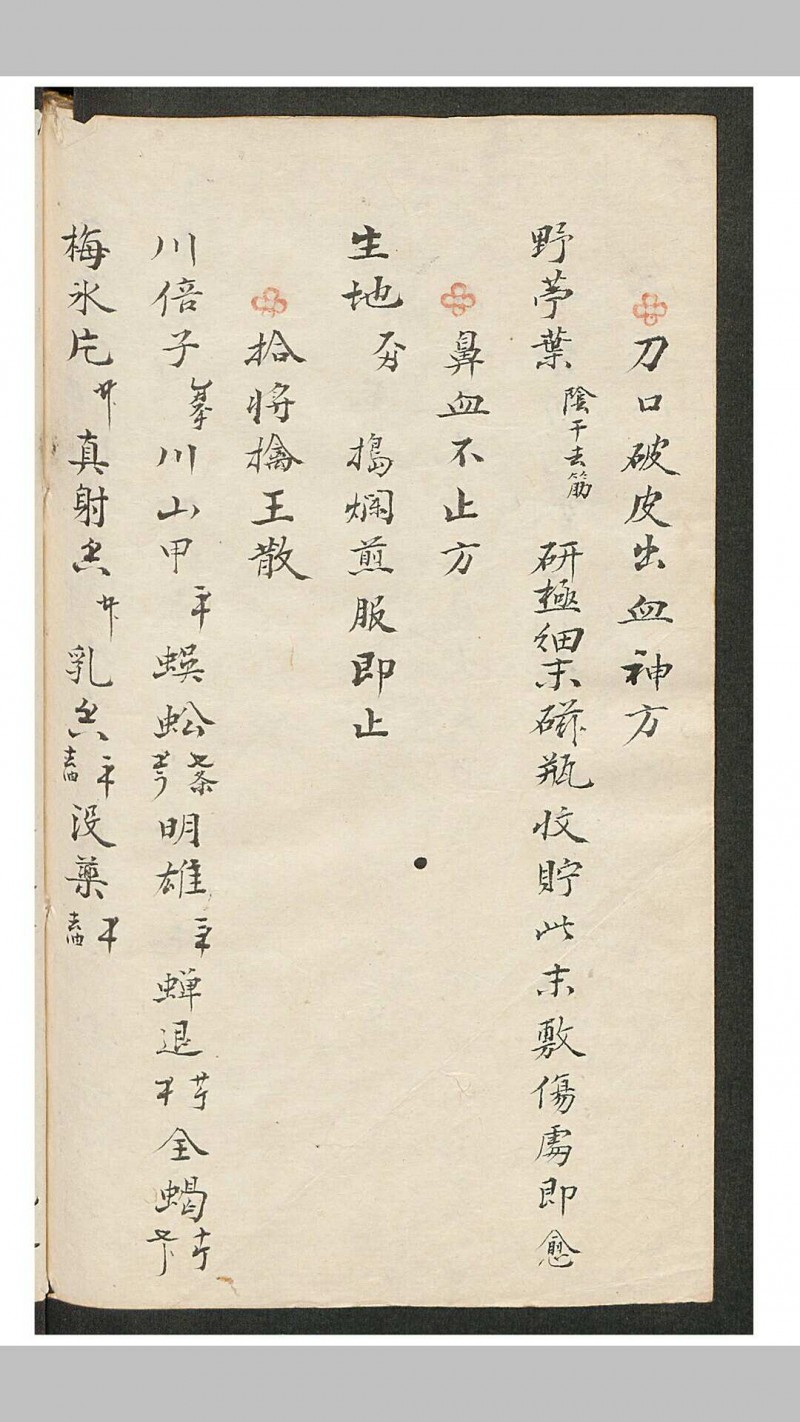 刀口破皮出血神方
野苧葉 陰干去筋 研極細末磁瓶收貯此末敷傷處即愈
鼻血不止方
生地 搗爛煎服即止
拾將擒王散
川倍子 川山甲 蜈蚣 七条 明雄 蟬退 全蝎
梅氷片 真射香 乳香 去油 没藥 去油